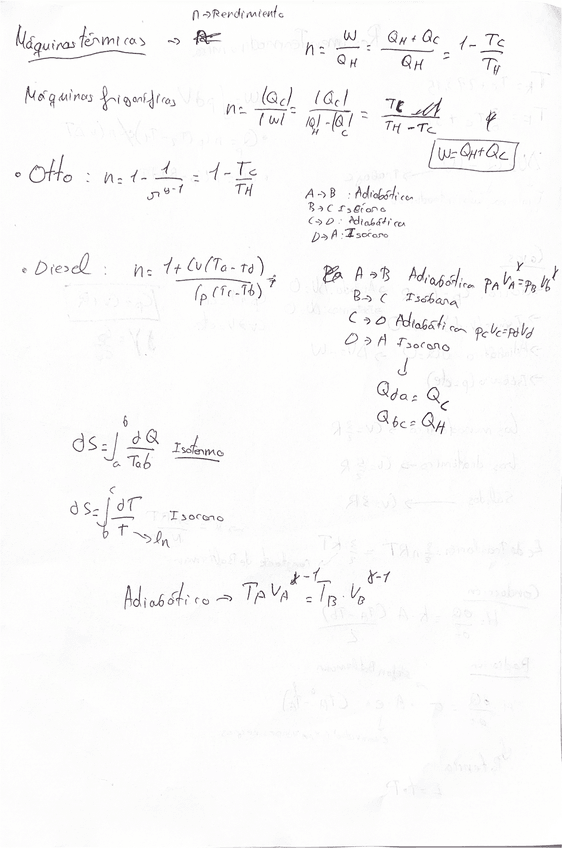 n→Rendimiento
Máquinas térmicas → n = W/Q_H = (Q_H + Q_C)/Q_H = 1 - T_C/T_H
Máquinas frigoríficas n = |Q_C|/|W| = |Q_C|/(|Q_H|-|Q_C|) = T_C/(T_H - T_C)
W=Q_H+Q_C
• Otto : n = 1 - 1/r^(γ-1) = 1 - T_C/T_H
A→B : Adiabática
B→C Isócora
C→D : Adiabática
D→A : Isócoro
• Diesel : n = 1 + Cv(Ta - Td)/(Cp(Tc - Tb))
A→B Adiabática p_A V_A^γ = p_B V_b^γ
B→C Isóbara
C→D Adiabática pcVc=pdVd
D→A Isócoro
↓
Qda = Q_C
Qbc = Q_H
dS = ∫_a^b dQ/Tab Isotermo
dS = ∫_b^c dT/T · Isocoro
→ ln
Adiabático → T_A V_A^(γ-1) = T_B · V_B^(γ-1)